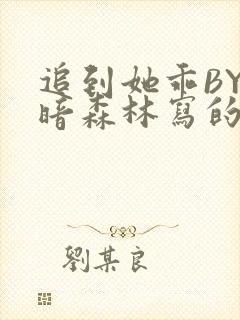 追到她乖BY
暗森林寫的
劉某良